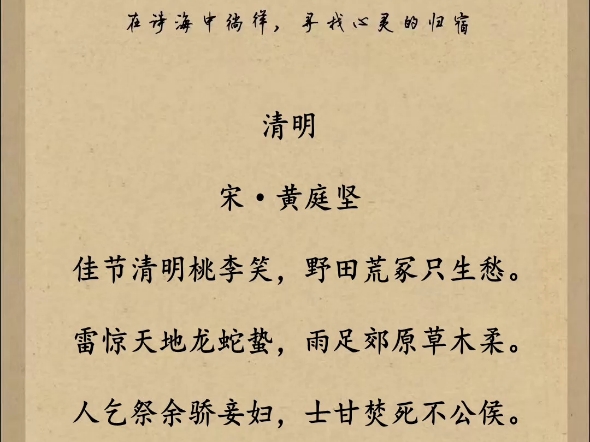 在诗海中徜徉，寻找心灵的归宿
清明
宋·黄庭坚
佳节清明桃李笑，野田荒冢只生愁。
雷惊天地龙蛇蛰，雨足郊原草木柔。
人乞祭余骄妾妇，士甘焚死不公侯。